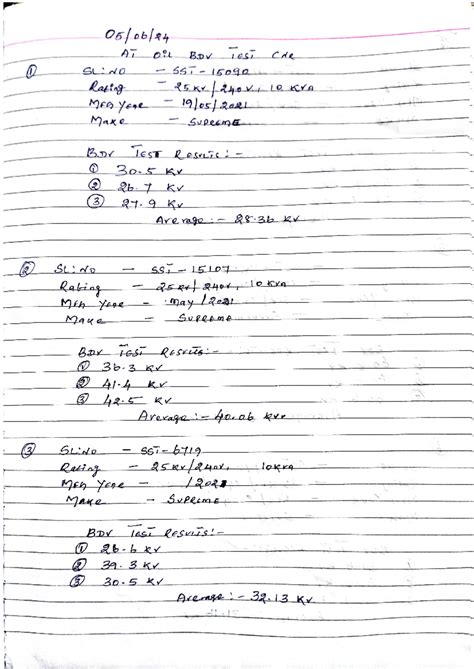 05/06/24
AT Oil BDV TEST CNR
① SL:NO - SST-15090
Rating - 25KV/240V, 10 KVA
MFN Year - 19/05/2021
Make - SUPREME
BDV TEST RESULTS:-
① 30.5 KV
② 26.7 KV
③ 27.9 KV
Average:- 28.36 KV
② SL:NO - SST-15107
Rating - 25KV/240V, 10KVA
MFN Year - May/2021
Make - SUPREME
BDV TEST RESULTS:-
① 36.3 KV
② 41.4 KV
③ 42.5 KV
Average:- 40.06 KV
③ SL:NO - SST-6719
Rating - 25KV/240V, 10KVA
MFN Year - /202
Make - SUPREME
BDV TEST RESULTS:-
① 26.6 KV
② 39.3 KV
③ 30.5 KV
Average:- 32.13 KV